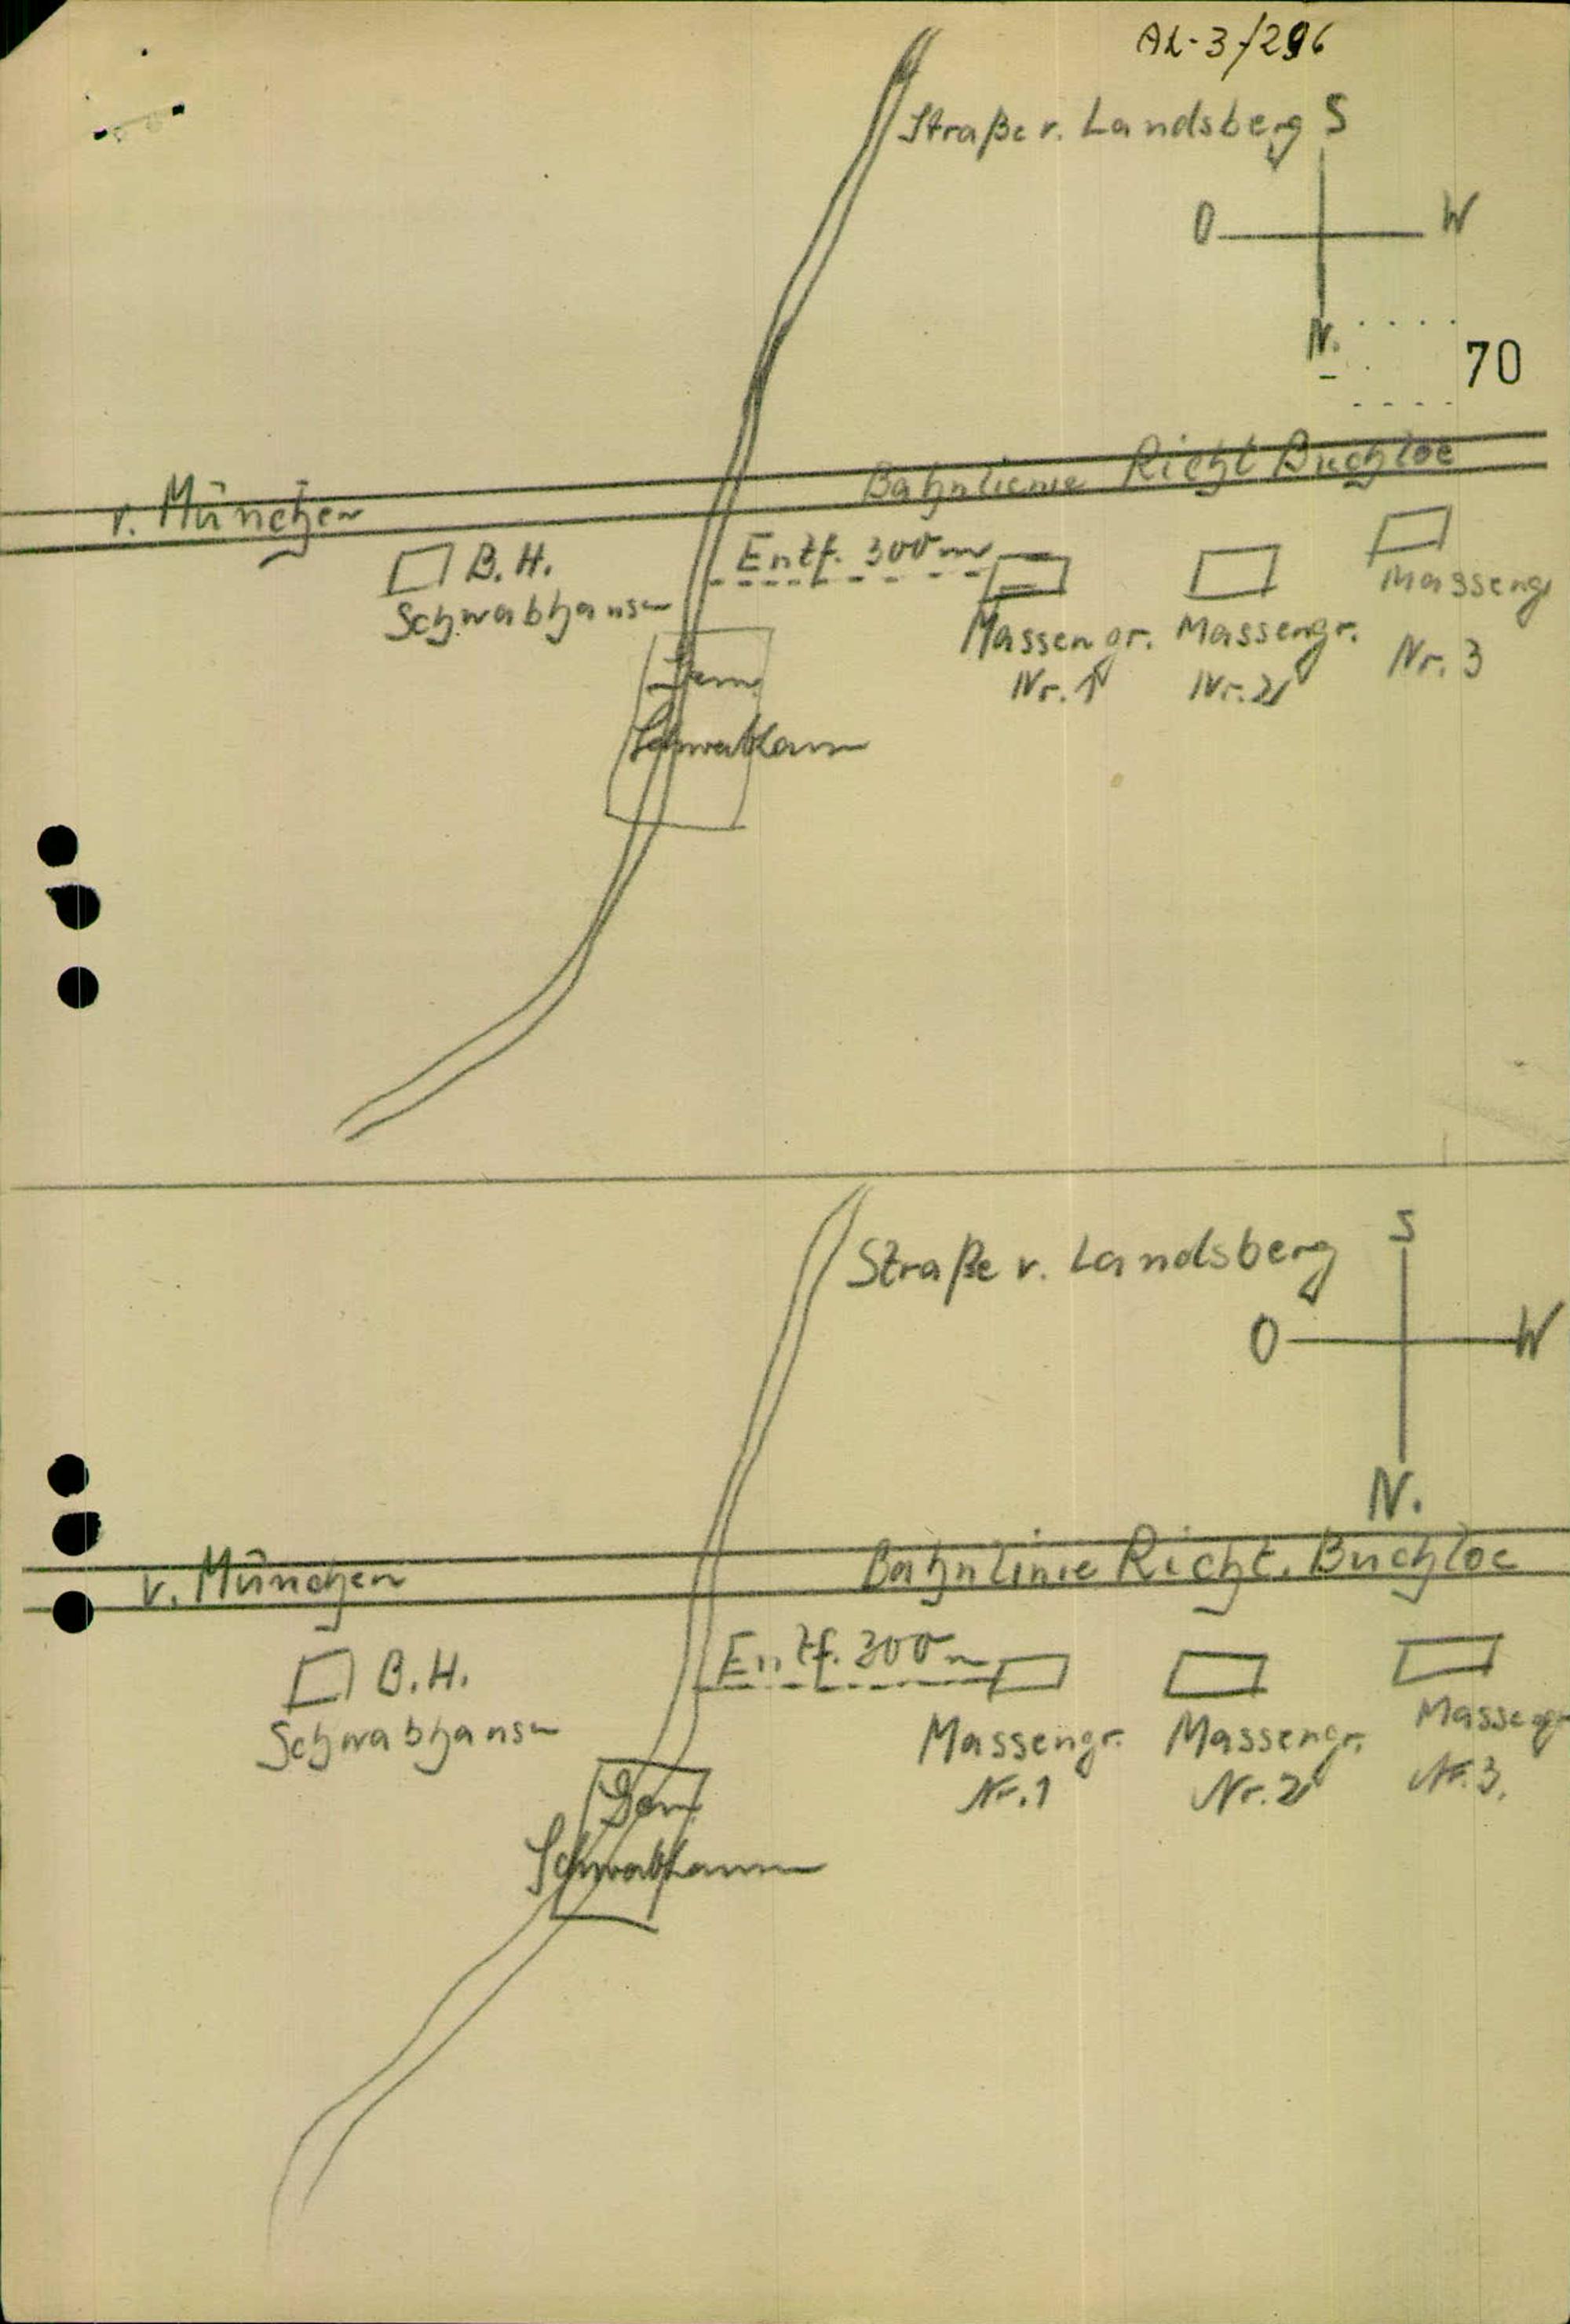 AL-3/296
Straße v. Landsberg
S
O W
N.
70
Bahnlinie Richt Buchloe
v. München
B.H.
Schwabhausen
Entf. 300 m
Massengr.
Nr. 1
Massengr.
Nr. 2
Masseng
Nr. 3
Schwabhausen
Straße v. Landsberg
S
O W
N.
Bahnlinie Richt. Buchloe
v. München
B.H.
Schwabhausen
Entf. 300 m
Massengr.
Nr. 1
Massengr.
Nr. 2
Massengr
Nr. 3.
Schwabhausen